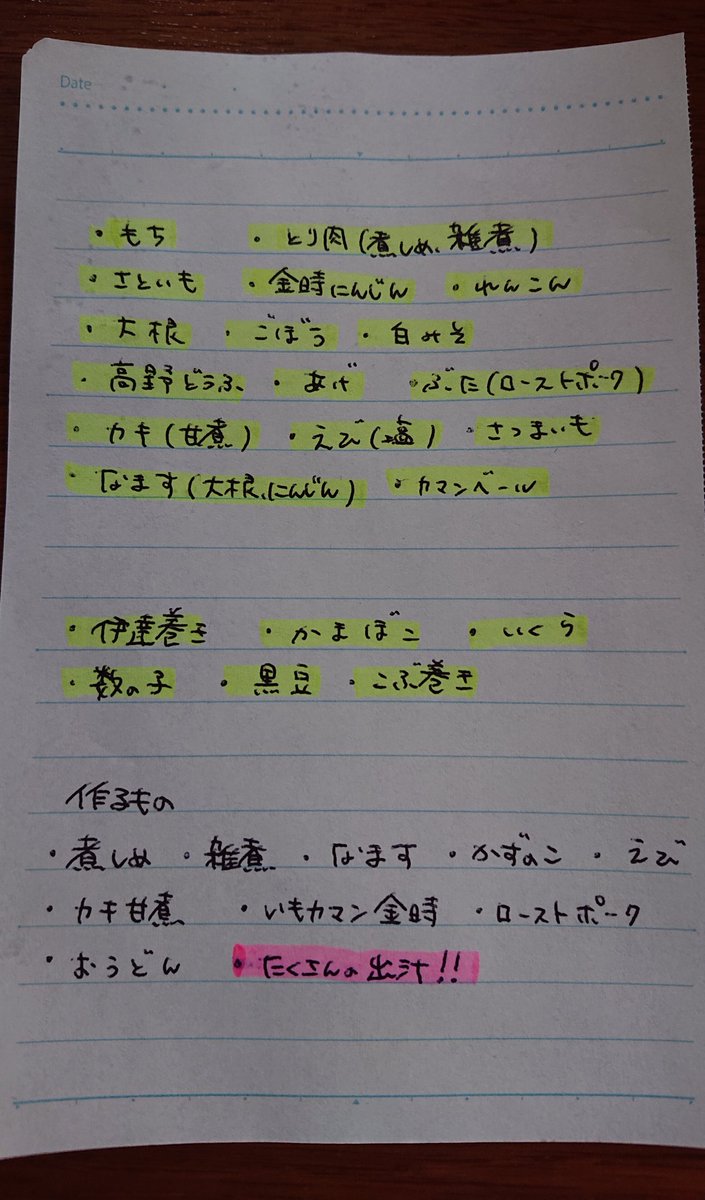 Date
・もち ・とり肉(煮しめ、雑煮)
・さといも ・金時にんじん ・れんこん
・大根 ・ごぼう ・白みそ
・高野どうふ ・あげ ・ぶた(ローストポーク)
・カキ(甘煮) ・えび(塩) ・さつまいも
・なます(大根、にんじん) ・カマンベール
・伊達巻き ・かまぼこ ・いくら
・数の子 ・黒豆 ・こぶ巻き
作るもの
・煮しめ ・雑煮 ・なます ・かずのこ ・えび
・カキ甘煮 ・いもカマン金時 ・ローストポーク
・おうどん ・たくさんの出汁!!